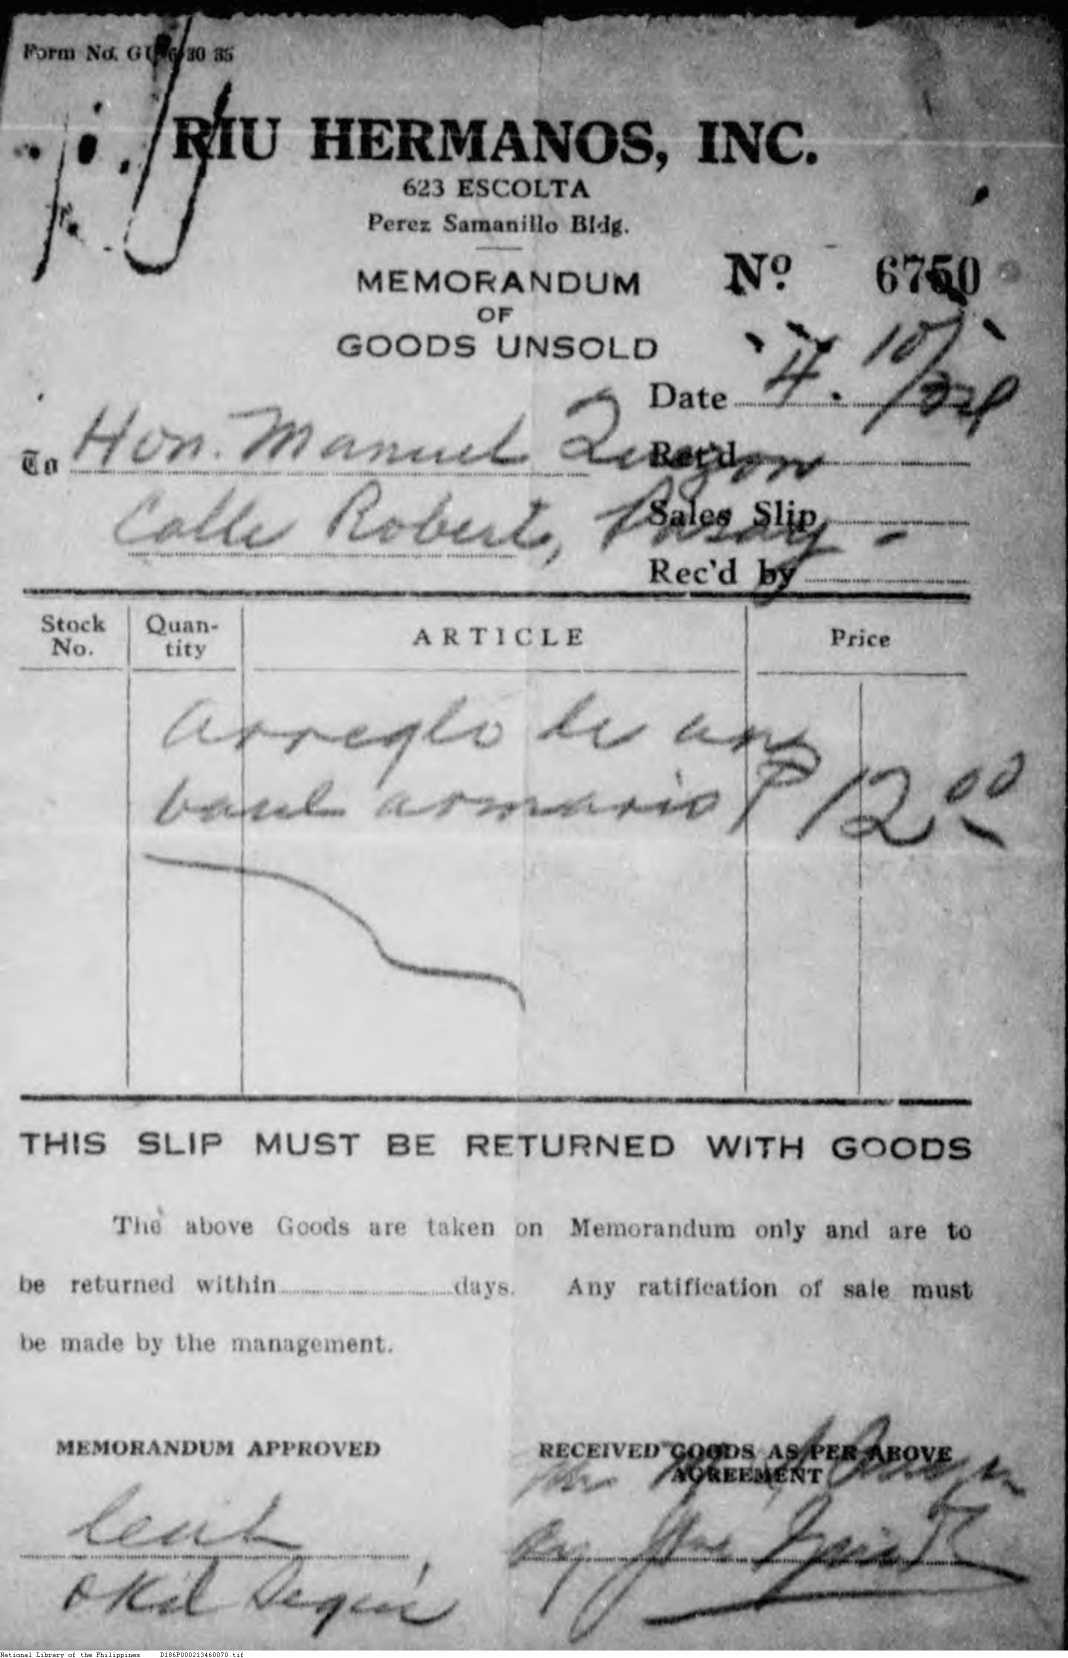 Form No. GU 6 30 35
RIU HERMANOS, INC.
623 ESCOLTA
Perez Samanillo Bldg.
MEMORANDUM
OF
GOODS UNSOLD
No 6750
Date 4. 10/
To Hon. Manuel Quezon
Ret'd
Calle Roberts, Pasay -
Sales Slip
Rec'd by
Stock No. Quantity ARTICLE Price
arreglo de un
baul armario ₱ 12.00
THIS SLIP MUST BE RETURNED WITH GOODS
The above Goods are taken on Memorandum only and are to
be returned within days. Any ratification of sale must
be made by the management.
MEMORANDUM APPROVED
RECEIVED GOODS AS PER ABOVE
AGREEMENT
National Library of the Philippines D186P000213460070.tif